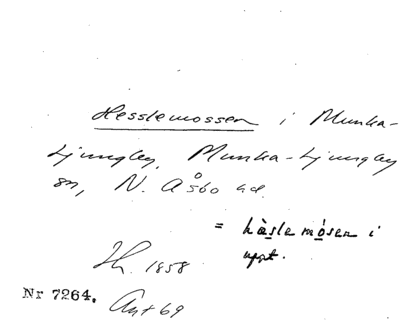 Hesslemossen i Munka-
Ljungby, Munka-Ljungby
sn, N. Åsbo hd.
= hàslemósen i
uppt.
Jh. 1858
Nr 7264. Ant 69